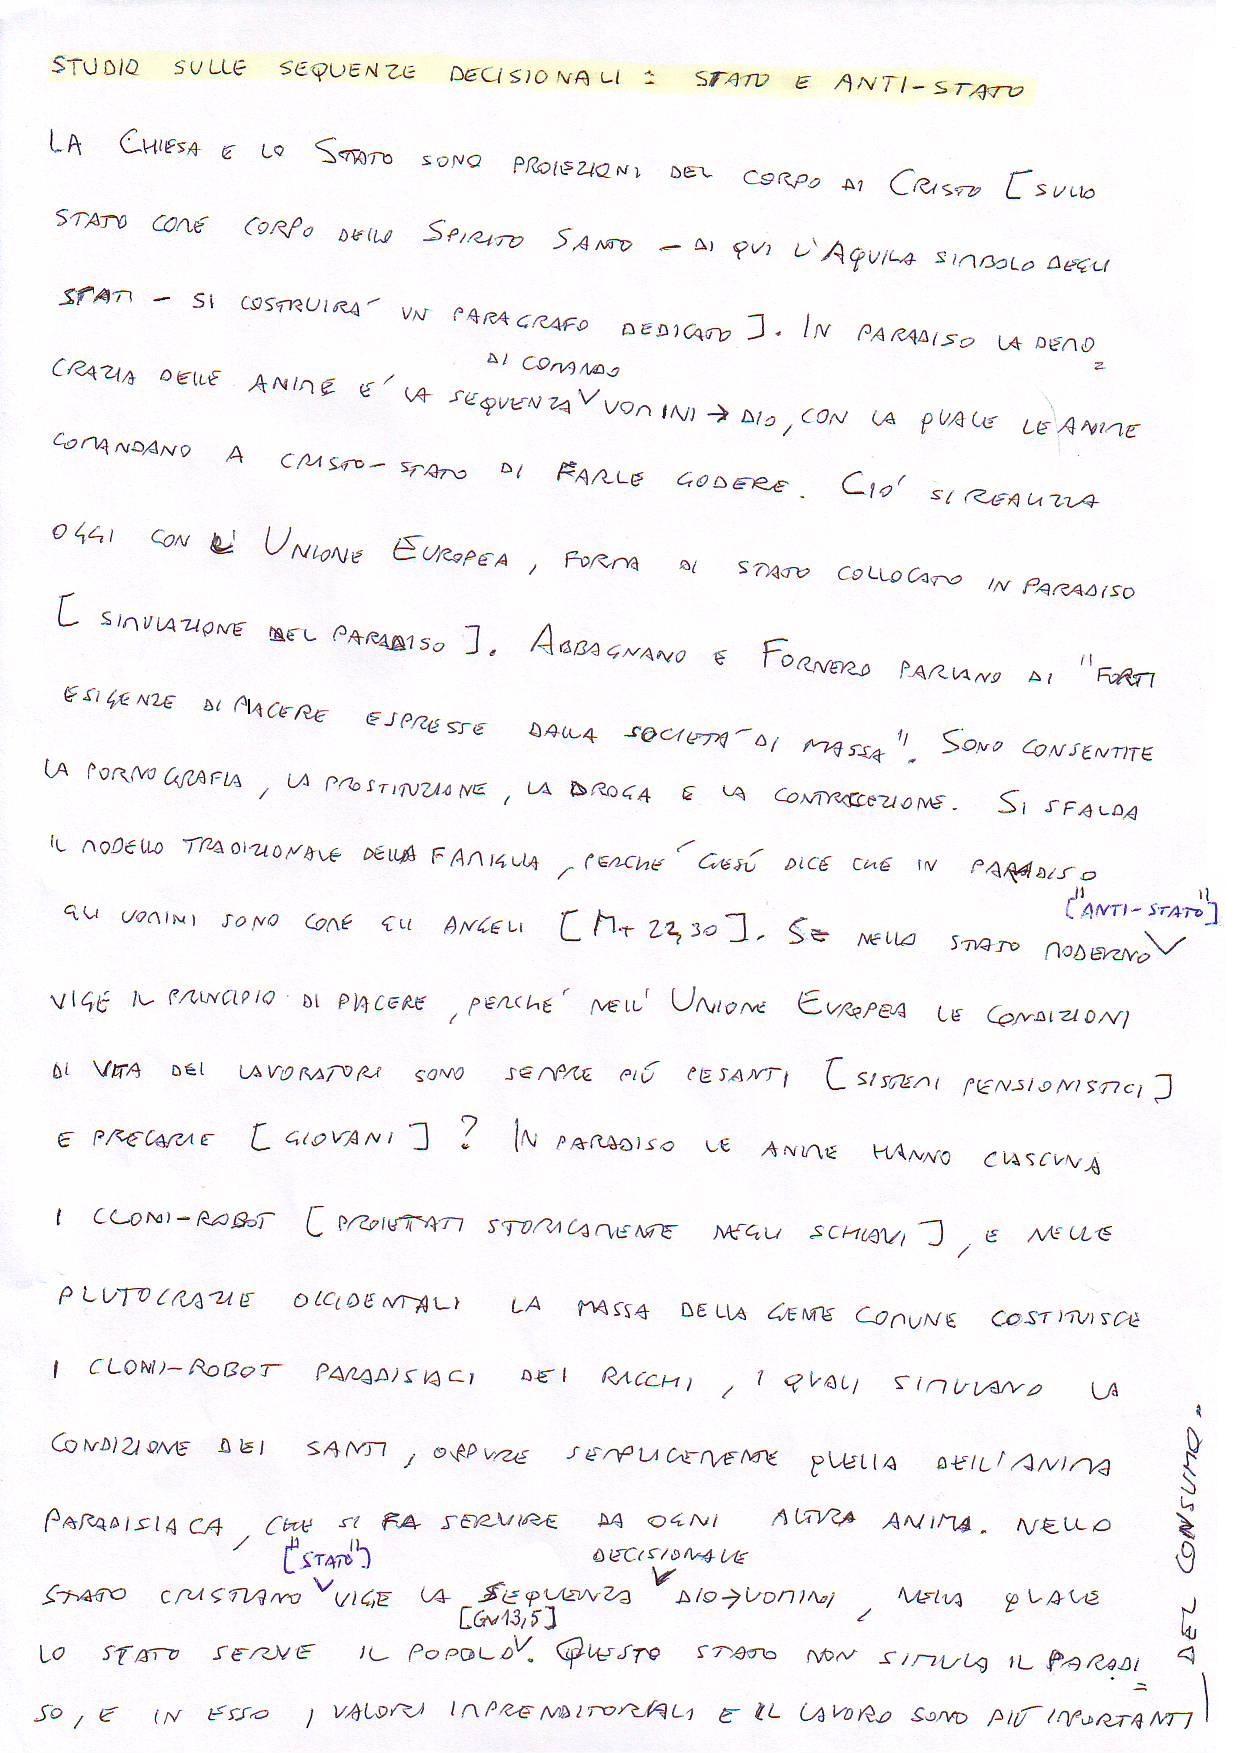 STUDIO SULLE SEQUENZE DECISIONALI: STATO E ANTI-STATO
LA CHIESA E LO STATO SONO PROIEZIONI DEL CORPO DI CRISTO [SULLO
STATO COME CORPO DELLO SPIRITO SANTO - DI QUI L'AQUILA SIMBOLO DEGLI
STATI - SI COSTRUIRA' UN PARAGRAFO DEDICATO]. IN PARADISO LA DEMO=
DI COMANDO
CRAZIA DELLE ANIME E' LA SEQUENZA UOMINI → DIO, CON LA QUALE LE ANIME
COMANDANO A CRISTO-STATO DI FARLE GODERE. CIO' SI REALIZZA
OGGI CON L'UNIONE EUROPEA, FORMA DI STATO COLLOCATO IN PARADISO
[SIMULAZIONE DEL PARADISO]. ABBAGNANO E FORNERO PARLANO DI "FORTI
ESIGENZE DI PIACERE ESPRESSE DALLA SOCIETA' DI MASSA". SONO CONSENTITE
LA PORNOGRAFIA, LA PROSTITUZIONE, LA DROGA E LA CONTRACCEZIONE. SI SFALDA
IL MODELLO TRADIZIONALE DELLA FAMIGLIA, PERCHE' GESÚ DICE CHE IN PARADISO
["ANTI-STATO"]
GLI UOMINI SONO COME GLI ANGELI [Mt 22,30]. SE NELLO STATO MODERNO
VIGE IL PRINCIPIO DI PIACERE, PERCHE' NELL'UNIONE EUROPEA LE CONDIZIONI
DI VITA DEI LAVORATORI SONO SEMPRE PIÚ PESANTI [SISTEMI PENSIONISTICI]
E PRECARIE [GIOVANI]? IN PARADISO LE ANIME HANNO CIASCUNA
I CLONI-ROBOT [PROIETTATI STORICAMENTE NEGLI SCHIAVI], E NELLE
PLUTOCRAZIE OCCIDENTALI LA MASSA DELLA GENTE COMUNE COSTITUISCE
I CLONI-ROBOT PARADISIACI DEI RICCHI, I QUALI SIMULANO LA
CONDIZIONE DEI SANTI, OPPURE SEMPLICEMENTE QUELLA DELL'ANIMA
PARADISIACA, CHE SI FA SERVIRE DA OGNI ALTRA ANIMA. NELLO
["STATO"] DECISIONALE
STATO CRISTIANO VIGE LA SEQUENZA DIO→UOMINI, NELLA QUALE
[Gv 13,5]
LO STATO SERVE IL POPOLO. QUESTO STATO NON SIMULA IL PARADI=
SO, E IN ESSO I VALORI IMPRENDITORIALI E IL LAVORO SONO PIÚ IMPORTANTI
DEL CONSUMO.